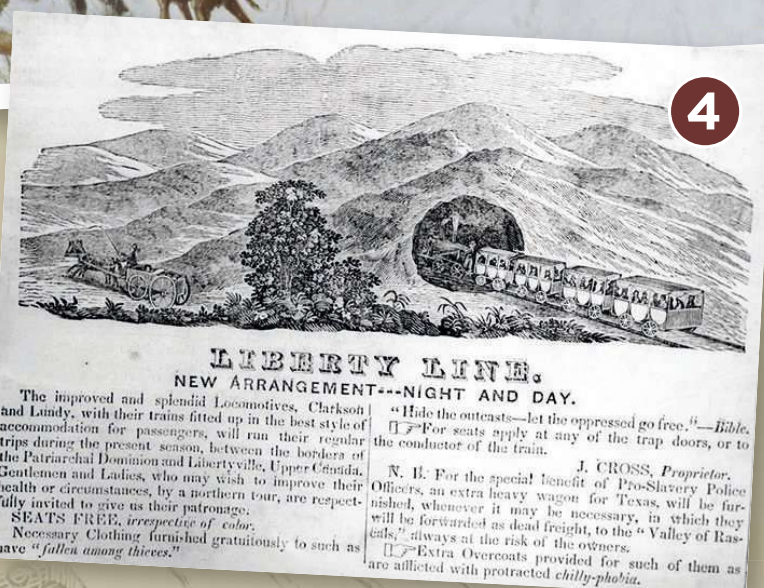 4
LIBERTY LINE.
NEW ARRANGEMENT---NIGHT AND DAY.
The improved and splendid Locomotives, Clarkson
and Lundy, with their trains fitted up in the best style of
accommodation for passengers, will run their regular
trips during the present season, between the borders of
the Patriarchal Dominion and Libertyville, Upper Canada.
Gentlemen and Ladies, who may wish to improve their
health or circumstances, by a northern tour, are respect-
fully invited to give us their patronage.
SEATS FREE, irrespective of color.
Necessary Clothing furnished gratuitously to such as
have "fallen among thieves."
"Hide the outcasts—let the oppressed go free."—Bible.
☞For seats apply at any of the trap doors, or to
the conductor of the train.
J. CROSS, Proprietor.
N. B. For the special benefit of Pro-Slavery Police
Officers, an extra heavy wagon for Texas, will be fur-
nished, whenever it may be necessary, in which they
will be forwarded as dead freight, to the "Valley of Ras-
cals," always at the risk of the owners.
☞Extra Overcoats provided for such of them as
are afflicted with protracted chilly-phobia.